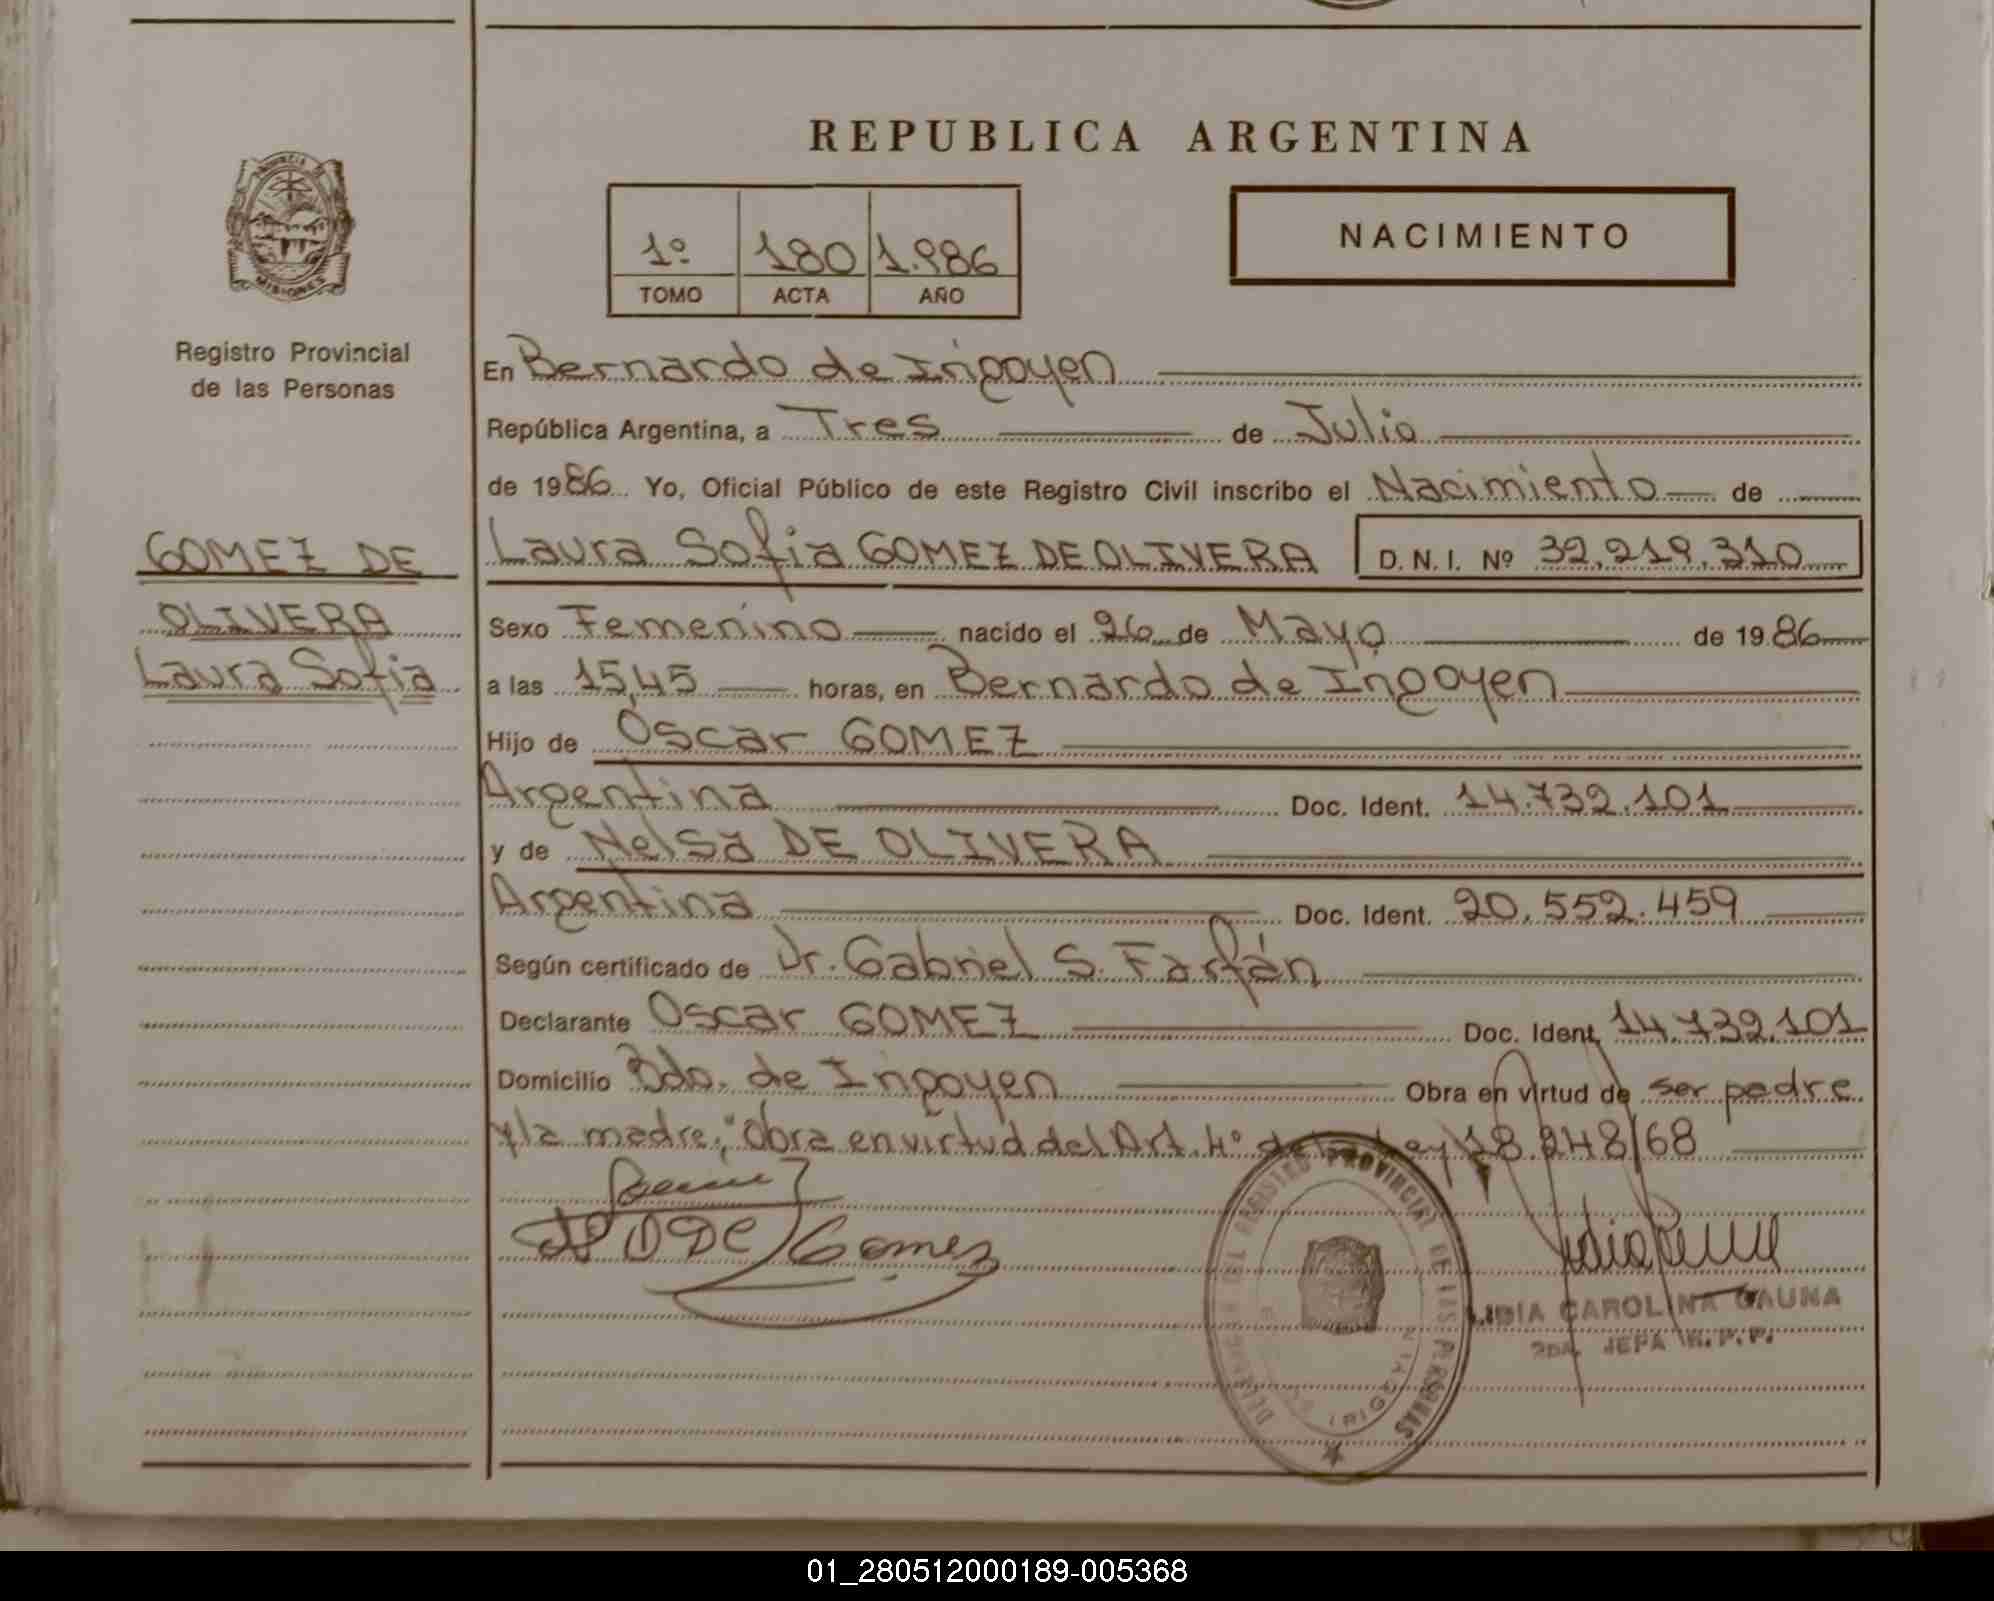 REPUBLICA ARGENTINA
NACIMIENTO
1º 180 1.986
TOMO ACTA AÑO
PROVINCIA
MISIONES
Registro Provincial
de las Personas
En Bernardo de Irigoyen
República Argentina, a Tres de Julio
de 1986 Yo, Oficial Público de este Registro Civil inscribo el Nacimiento de
GOMEZ DE
OLIVERA
Laura Sofia
Laura Sofia GOMEZ DE OLIVERA D. N. I. Nº 32.219.310
Sexo Femenino nacido el 26 de Mayo de 1986
a las 15,45 horas, en Bernardo de Irigoyen
Hijo de Oscar GOMEZ
Argentina Doc. Ident. 14.732.101
y de Nelsa DE OLIVERA
Argentina Doc. Ident. 20.552.459
Según certificado de Dr. Gabriel S. Farfán
Declarante Oscar GOMEZ Doc. Ident. 14.732.101
Domicilio Bdo. de Irigoyen Obra en virtud de ser padre
y la madre; "Obra en virtud del Art. 4º de la Ley 18.248/68
Gomez
DEL REGISTRO PROVINCIAL DE LAS PERSONAS
IRIGOYEN
LIDIA CAROLINA GAUNA
2DA. JEFA R.P.P.
01_280512000189-005368